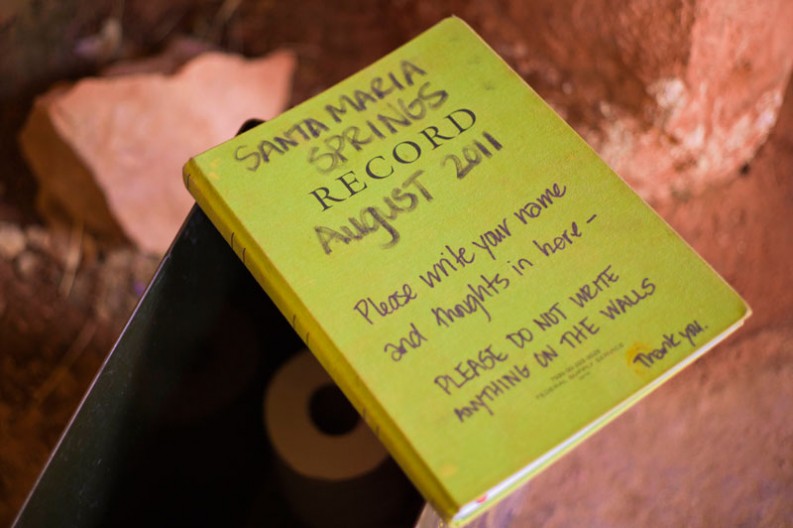 SANTA MARIA
SPRINGS
RECORD
AUGUST 2011
Please write your name
and thoughts in here -
PLEASE DO NOT WRITE
ANYTHING ON THE WALLS
Thank you.
FEDERAL SUPPLY SERVICE